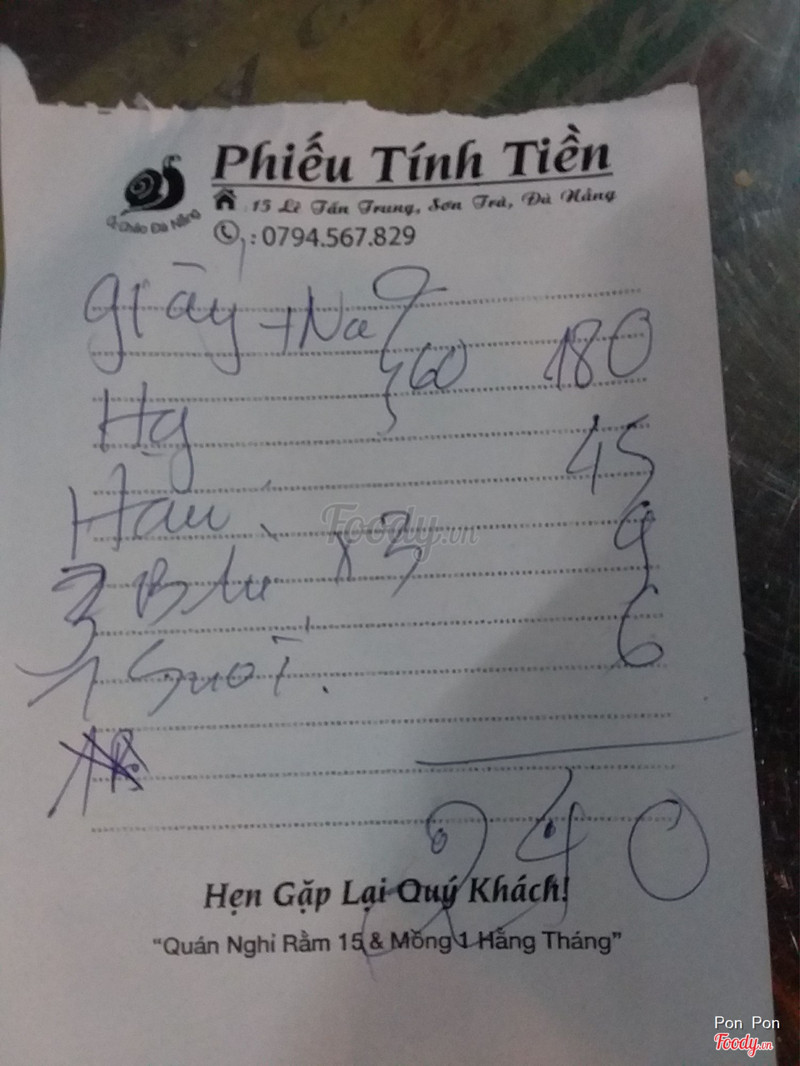 Phiếu Tính Tiền
15 Lê Tấn Trung, Sơn Trà, Đà Nẵng
Q. Cháo Đà Nẵng
: 0794.567.829
giầy + Na
60 180
Hạ
45
Hàu
Foody.vn
3 B tu x 3 9
1 Suối. 6
240
Hẹn Gặp Lại Quý Khách!
"Quán Nghỉ Rằm 15 & Mồng 1 Hằng Tháng"
Pon Pon
Foody.vn